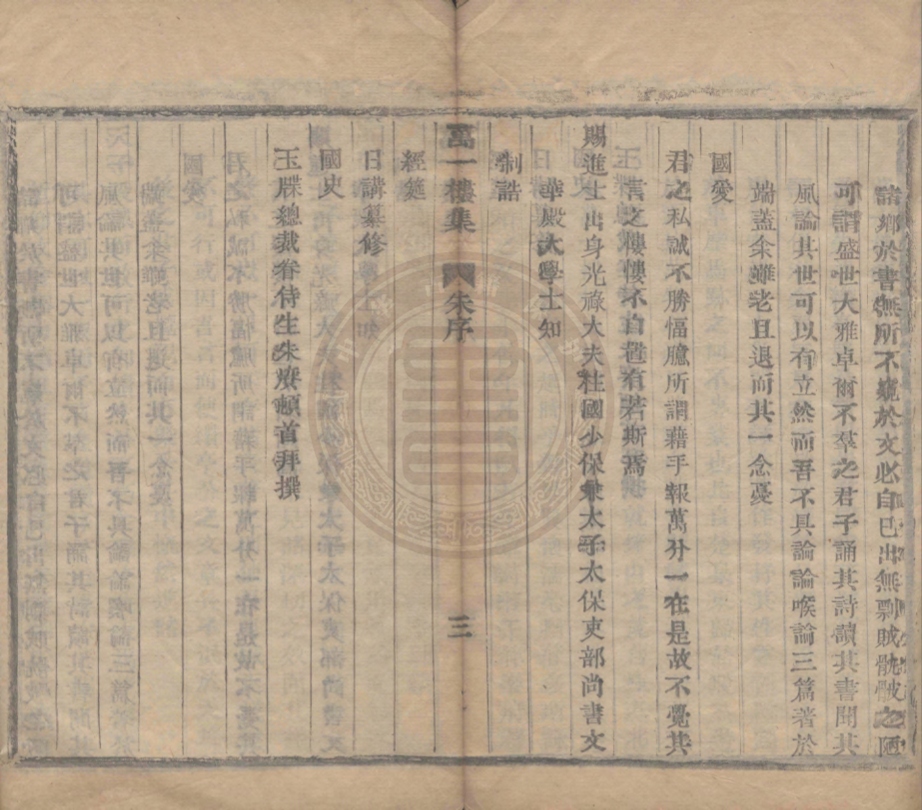 諸鄉於書無所不窺於文必自已出無剽賊骫骳之陋
可謂盛世大雅卓爾不羣之君子誦其詩讀其書聞其
風論其世可以有立然而吾不具論論喉論三篇著於
端蓋余雖老且退而其一念憂
國愛
君之私誠不勝愊臆所謂藉手報萬分一在是故不覺其
言之慺慺不自置有若斯焉
賜進士出身光祿大夫柱國少保兼太子太保吏部尚書文
華殿大學士知
制誥
經筵
日講纂修
國史
玉牒總裁眷侍生朱賡頓首拜撰
萬一樓集 朱序 三